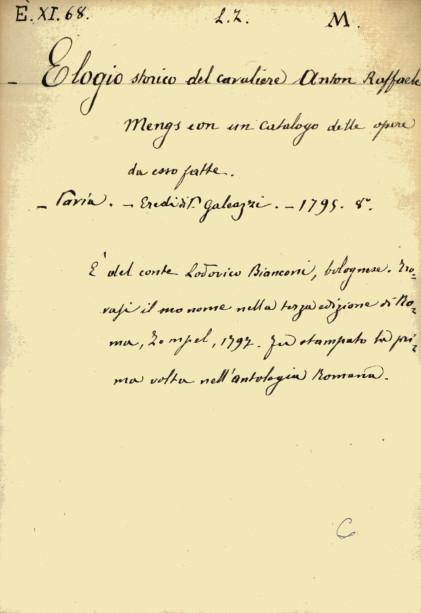 E. XI. 68. L. Z. M.
– Elogio storico del cavaliere Anton Raffaele
Mengs con un catalogo delle opere
da esso fatte.
– Pavia. – Eredi di P. Galeazzi. – 1795. 8°.
È del conte Lodovico Bianconi, bolognese. Tro-
vasi il suo nome nella terza edizione di Ro-
ma, Zempel, 1797. Fu stampato la pri-
ma volta nell'Antologia Romana.
C